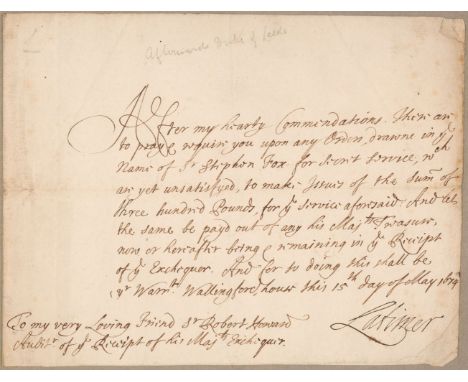 Afterward Duke of Leeds
After my hearty Commendations. These are
to pray & require you upon any Orders drawne in ye
Name of Sr Stephen Fox for secret service, wch
are yet unsatisfyed, to make Issues of the Sum of
three hundred Pounds, for ye service aforesaid. And let
the same be payd out of any his Majts Treasure,
now or hereafter being & remaining in ye Receipt
of ye Exchequer. And for so doing this shall be
yr Warrt. Wallingford house this 15th day of May 1674
Latimer
To my very Loving Friend Sr Robert Howard
Auditr of ye Receipt of his Majts Exchequer.